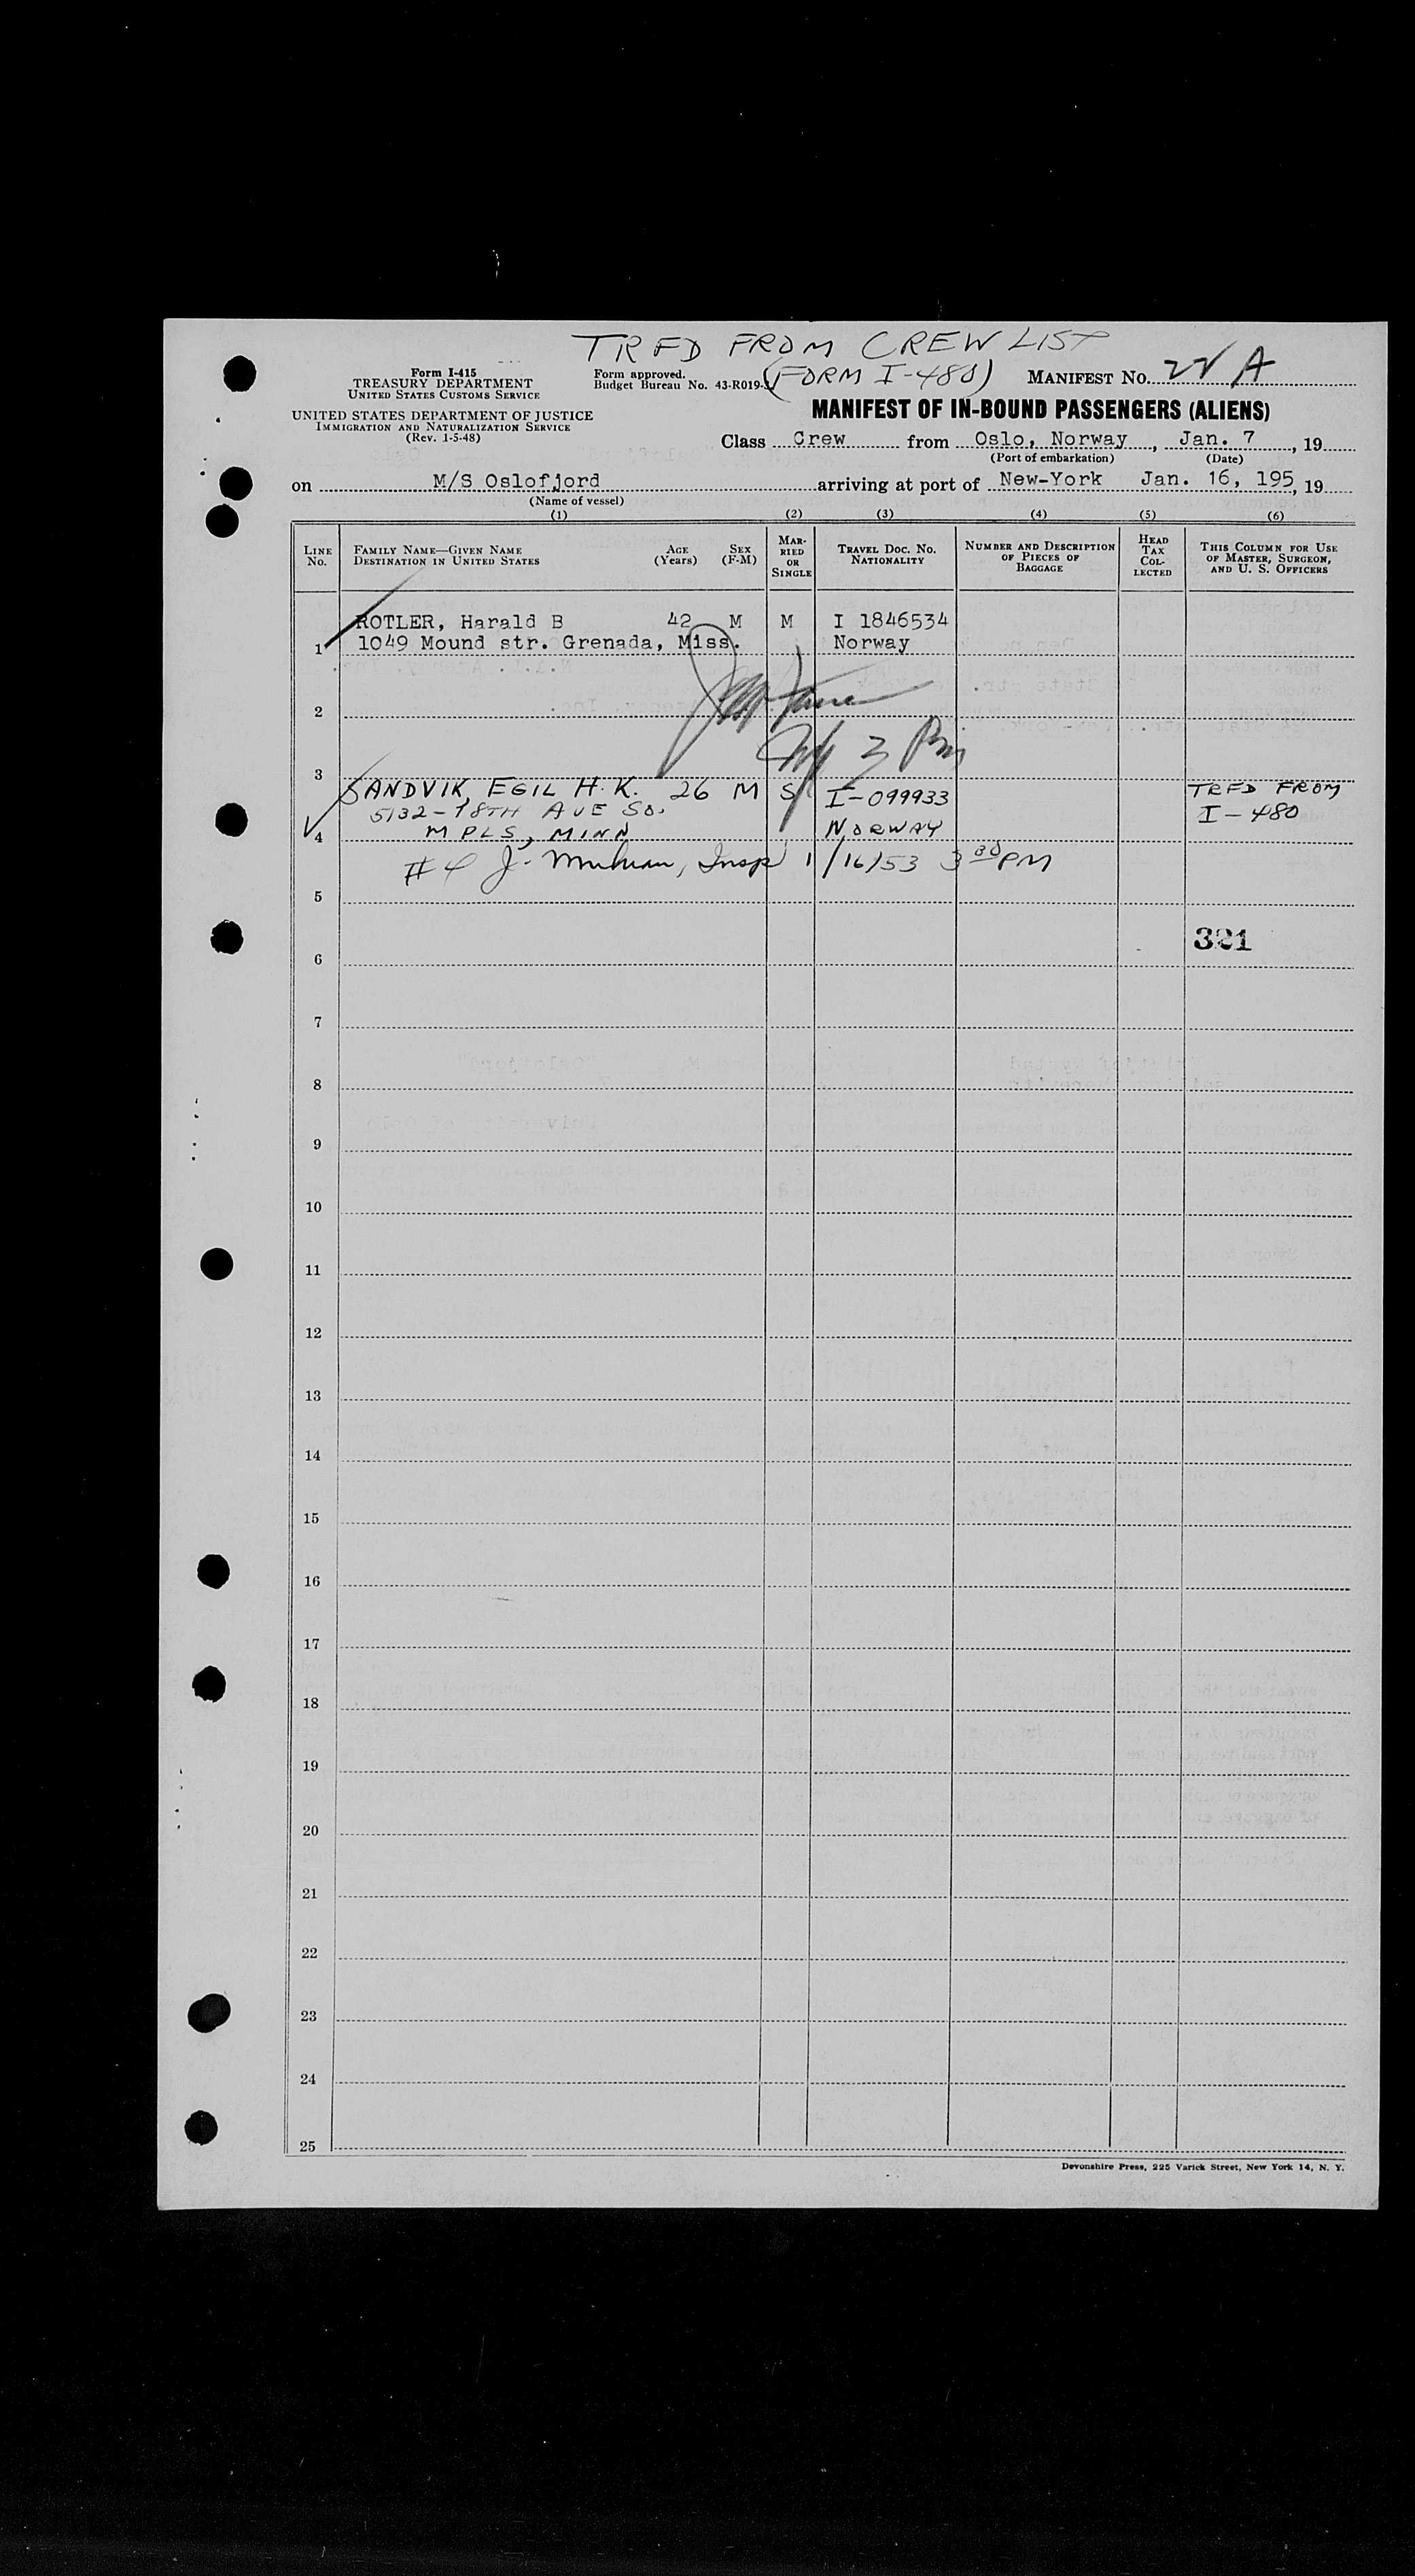 TRFD FROM CREW LIST
(FORM I-480)
Form I-415
TREASURY DEPARTMENT
UNITED STATES CUSTOMS SERVICE
UNITED STATES DEPARTMENT OF JUSTICE
IMMIGRATION AND NATURALIZATION SERVICE
(Rev. 1-5-48)
Form approved.
Budget Bureau No. 43-R019-
MANIFEST NO. A
MANIFEST OF IN-BOUND PASSENGERS (ALIENS)
Class Crew from Oslo, Norway, Jan. 7, 19
(Port of embarkation) (Date)
on M/S Oslofjord arriving at port of New-York Jan. 16, 195, 19
(Name of vessel)
(1) (2) (3) (4) (5) (6)
LINE NO.
FAMILY NAME—GIVEN NAME
DESTINATION IN UNITED STATES
AGE (Years)
SEX (F-M)
MARRIED OR SINGLE
TRAVEL DOC. NO. NATIONALITY
NUMBER AND DESCRIPTION OF PIECES OF BAGGAGE
HEAD TAX COLLECTED
THIS COLUMN FOR USE OF MASTER, SURGEON, AND U. S. OFFICERS
ROTLER, Harald B 42 M M I 1846534
1 1049 Mound str. Grenada, Miss. Norway
2
3 Pm
3
SANDVIK, EGIL H. K. 26 M S I-099933 TRFD FROM
5132-18TH AVE SO. I-480
4 MPLS, MINN NORWAY
#4 J. Insp 1/16/53 3 30 PM
5
321
6
7
8
9
10
11
12
13
14
15
16
17
18
19
20
21
22
23
24
25
Devonshire Press, 225 Varick Street, New York 14, N. Y.